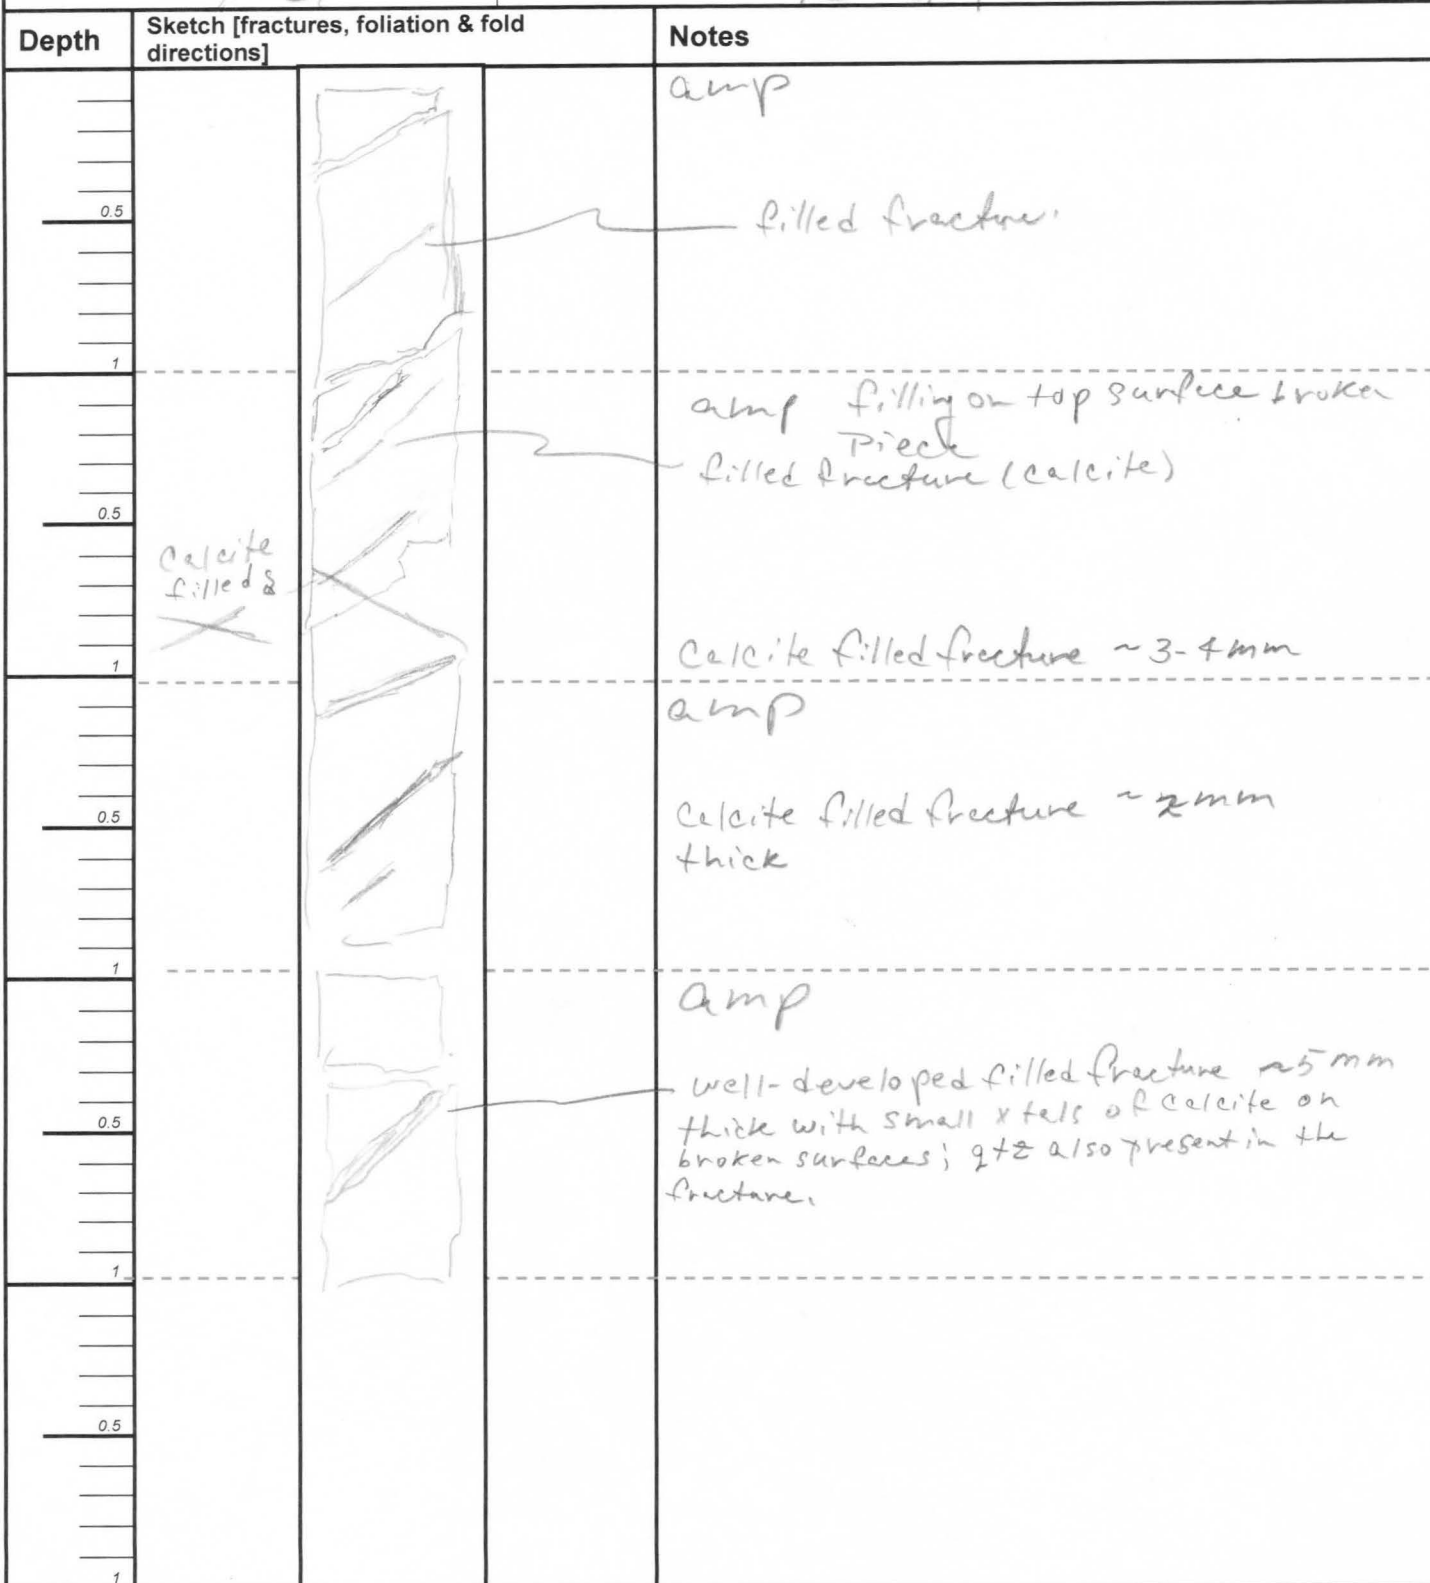 Depth
Sketch [fractures, foliation & fold
directions]
Notes
amp
0.5
filled fracture.
1
amp filling on top surface broken
piece
filled fracture (calcite)
0.5
Calcite
filled &
Calcite filled fracture ~3-4mm
1
amp
0.5
Calcite filled fracture ~2mm
thick
1
amp
well-developed filled fracture ~5mm
thick with small xtals of calcite on
0.5
broken surfaces; qtz also present in the
fracture.
1
0.5
1